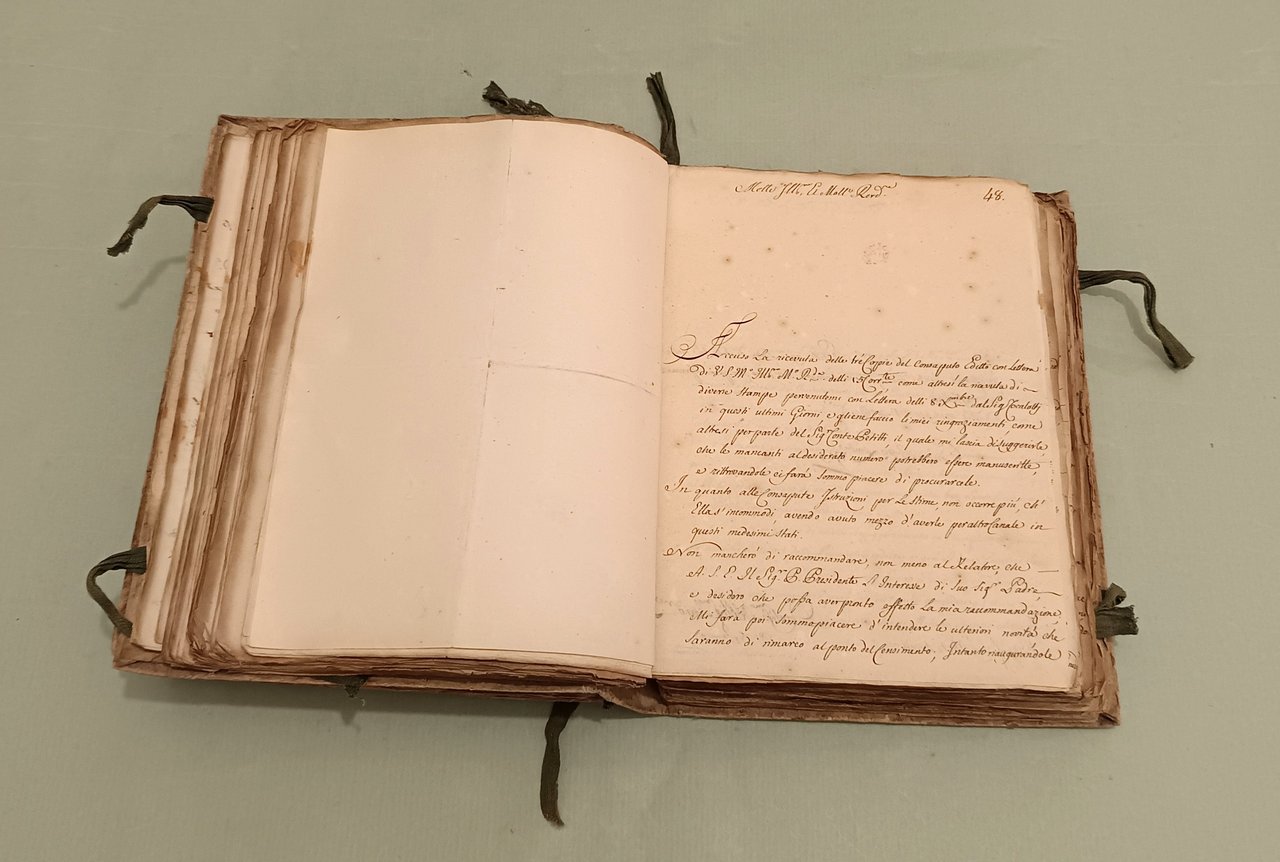 Molto Ill.re, E Molto Rev.do
48.
Accuso La ricevuta delle tré Coppie del Consaputo Editto con Lettera
di V. S. M.to Ill.re M.to R.da delli Corr.te come altresì la ricevuta di
diverse stampe pervenutemi con Lettera delli 8 dal Sig.r
in questi ultimi Giorni, e gliene faccio li miei ringraziamenti, come
altresì per parte del Sig.r Conte Petitti, il quale mi lascia di suggerirle,
che le mancanti al desiderato numero potrebbero essere manuscritte,
e ritrovandole ci farà sommo piacere di procurarcele.
In quanto alle Consapute Istruzioni per Le stime, non occorre più, ch'
Ella s'incommodi, avendo avuto mezzo d'averle per altro Canale in
questi medesimi stati.
Non mancherò di raccommandare, non meno al Relatore, che
A. S. E. Il Sig.r P. Presidente L'Interesse di suo Sig.r Padre,
e desidero che possa aver pronto effetto La mia raccommandazione
Mi sarà poi sommo piacere d'intendere le ulteriori novità che
saranno di rimarco al ponto del Censimento; Intanto naugurandole